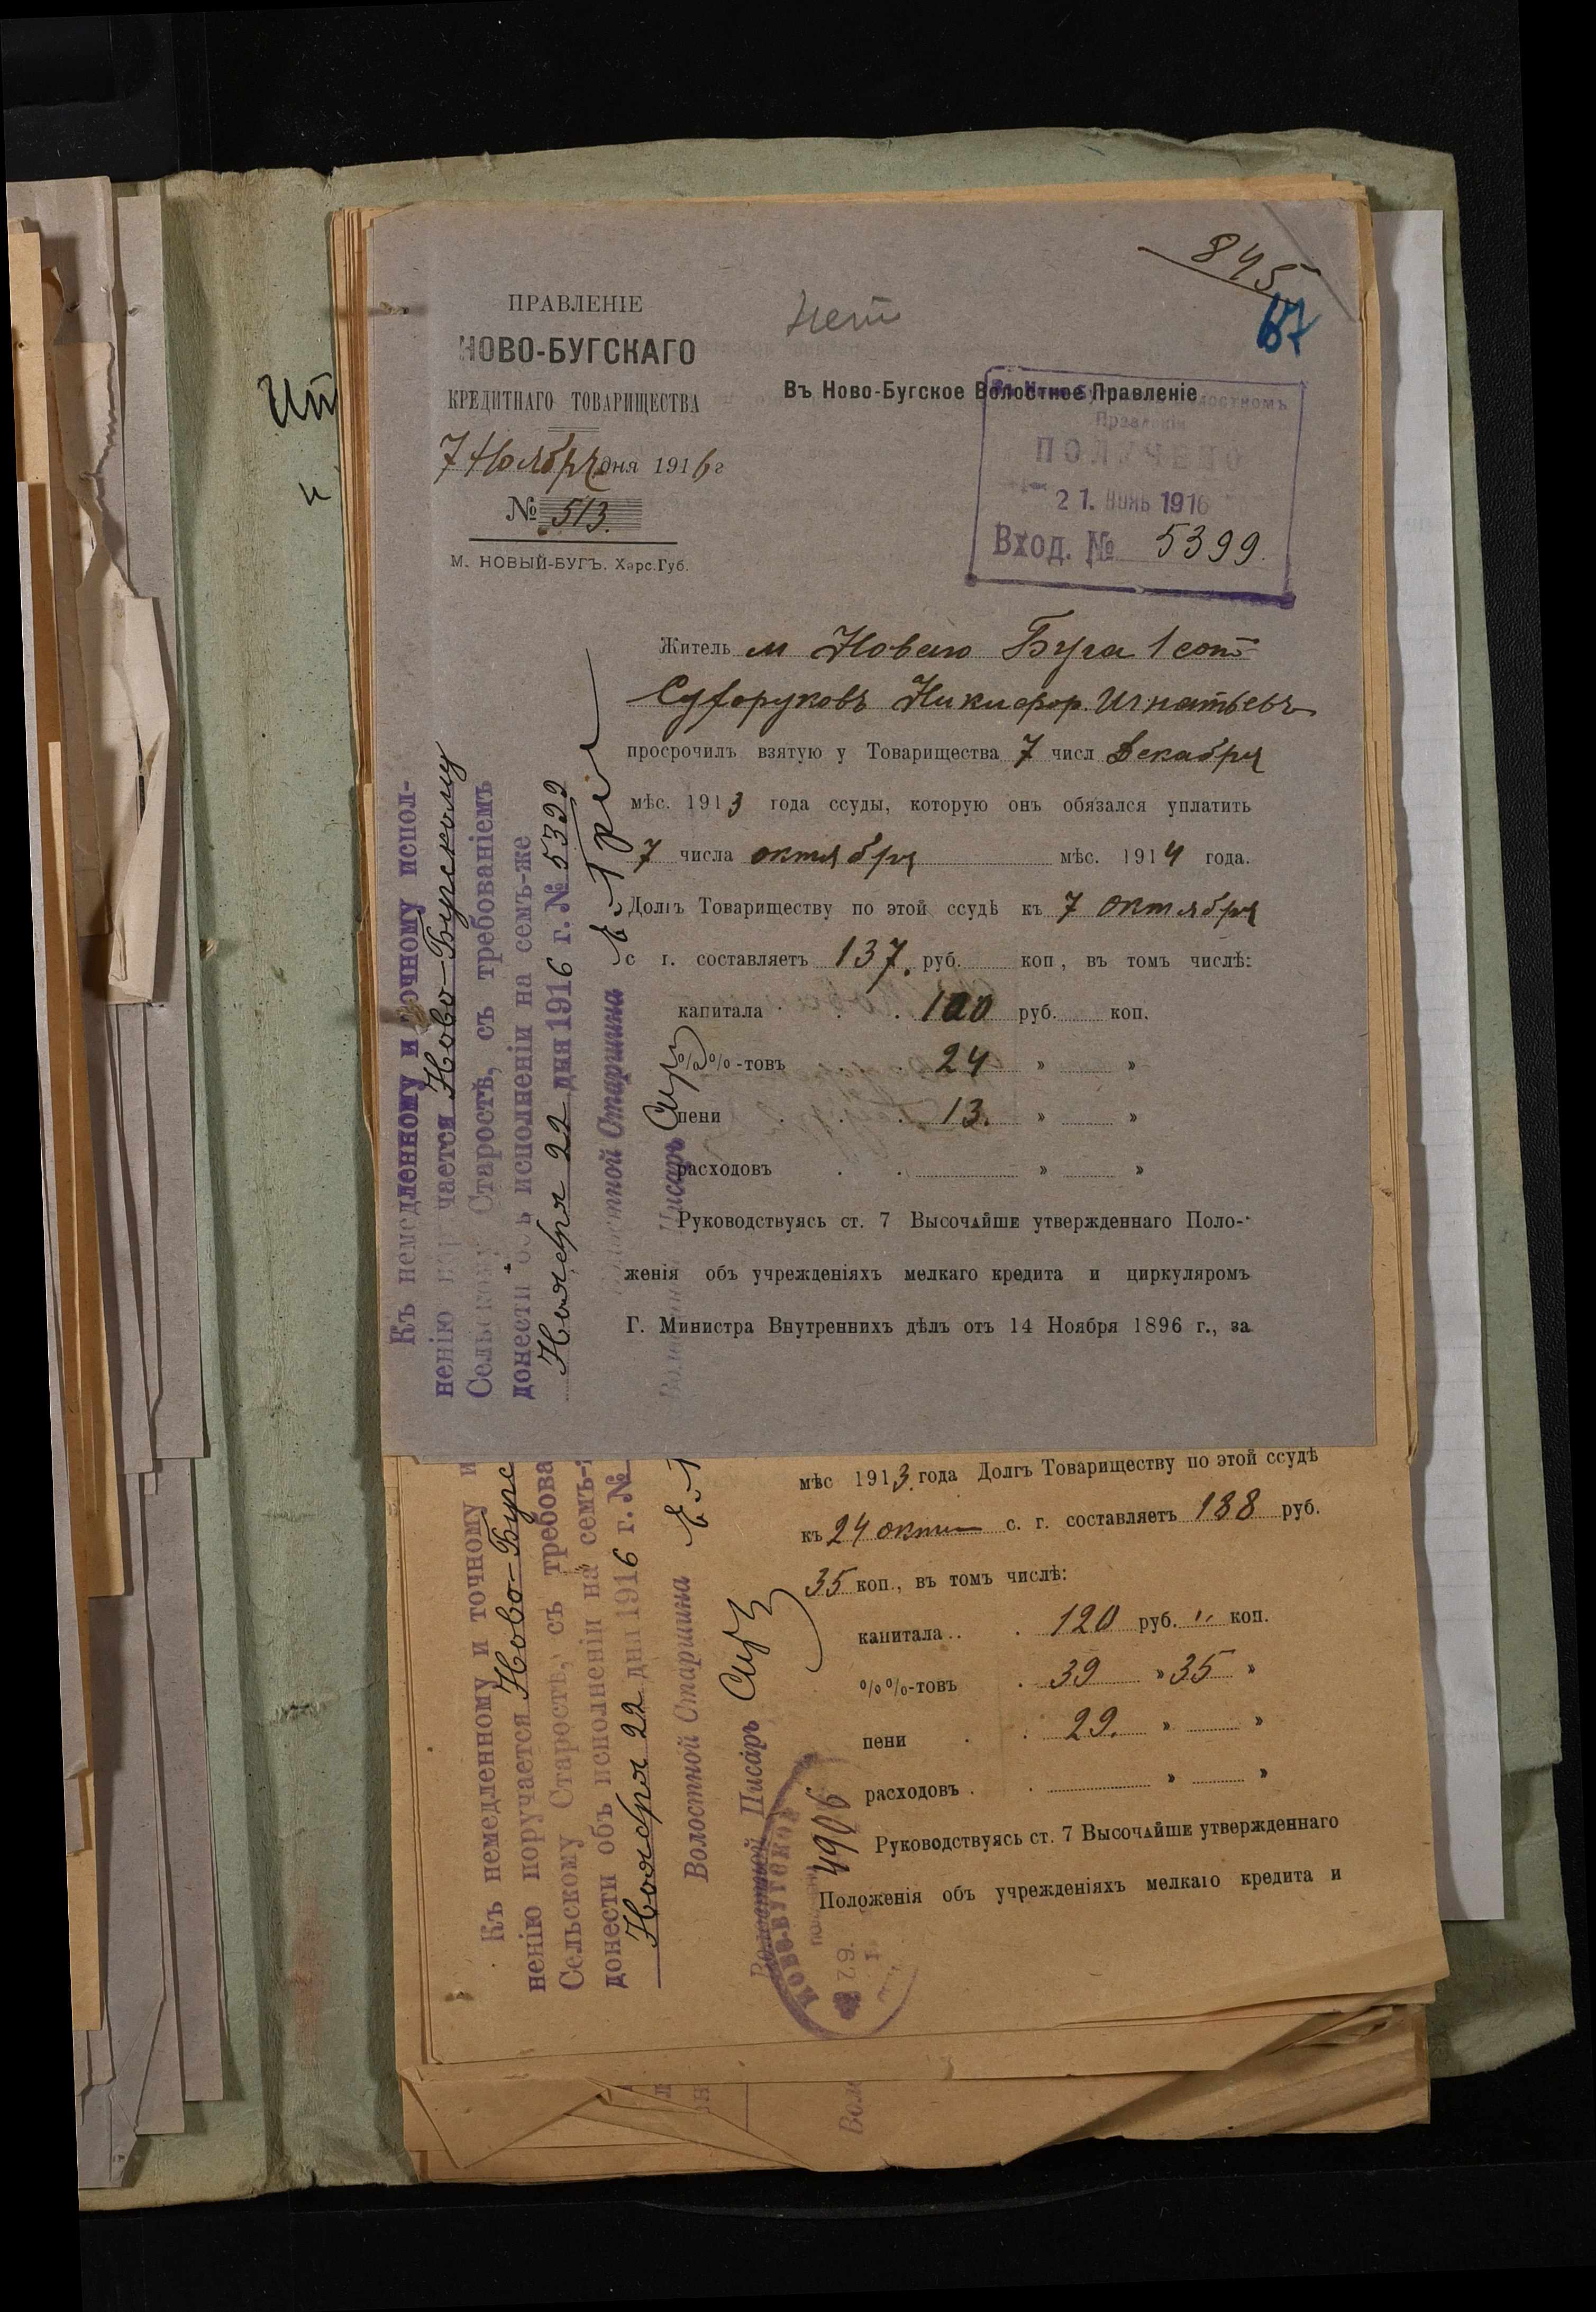 845
67
нет
ПРАВЛЕНІЕ
НОВО-БУГСКАГО
КРЕДИТНАГО ТОВАРИЩЕСТВА
7 Ноября дня 1916 г
№ 513.
М. НОВЫЙ-БУГЪ, Херс.Губ.
Въ Ново-Бугское Волостное Правленіе
Правленіи
ПОЛУЧЕНО
21. НОЯБ 1916
Вход. № 5399.
Житель м Новаго Буга 1 сот
Сухоруковъ Никифор Игнатьевъ
просрочилъ взятую у Товарищества 7 числ Декабря
мѣс. 1913 года ссуды, которую онъ обязался уплатить
7 числа октября мѣс. 1914 года.
Долгъ Товариществу по этой ссудѣ къ 7 октября
с г. составляетъ 137. руб. коп, въ томъ числѣ:
капитала . . 100 руб. коп.
%%-товъ . 24 » »
пени . . . 13. » »
расходовъ . . » »
Руководствуясь ст. 7 Высочайше утвержденнаго Поло-
женія объ учрежденіяхъ мелкаго кредита и циркуляромъ
Г. Министра Внутреннихъ дѣлъ отъ 14 Ноября 1896 г., за
Къ немедленному и точному испол-
ненію поручается Ново-Бугскому
Сельскому Старостѣ, съ требованіемъ
донести объ исполненіи на семъ-же
Ноября 22 дня 1916 г. № 5399
Волостной Старшина
Волостной Писарь
мѣс 1913. года Долгъ Товариществу по этой ссудѣ
къ 24 окт с. г. составляетъ 188 руб.
35 коп., въ томъ числѣ:
капитала . . . 120 руб. " коп.
%%-товъ . 39 » 35 »
пени . . 29. » »
расходовъ . . » »
Руководствуясь ст. 7 Высочайше утвержденнаго
Положенія объ учрежденіяхъ мелкаго кредита и
Къ немедленному и точному и
ненію поручается Ново-Бугс
Сельскому Старостѣ, съ требова
донести объ исполненіи на семъ-
Ноября 22 дня 1916 г. №
Волостной Старшина
Волостной Писарь
4906
НОВО-БУГСКОЕ
Вол